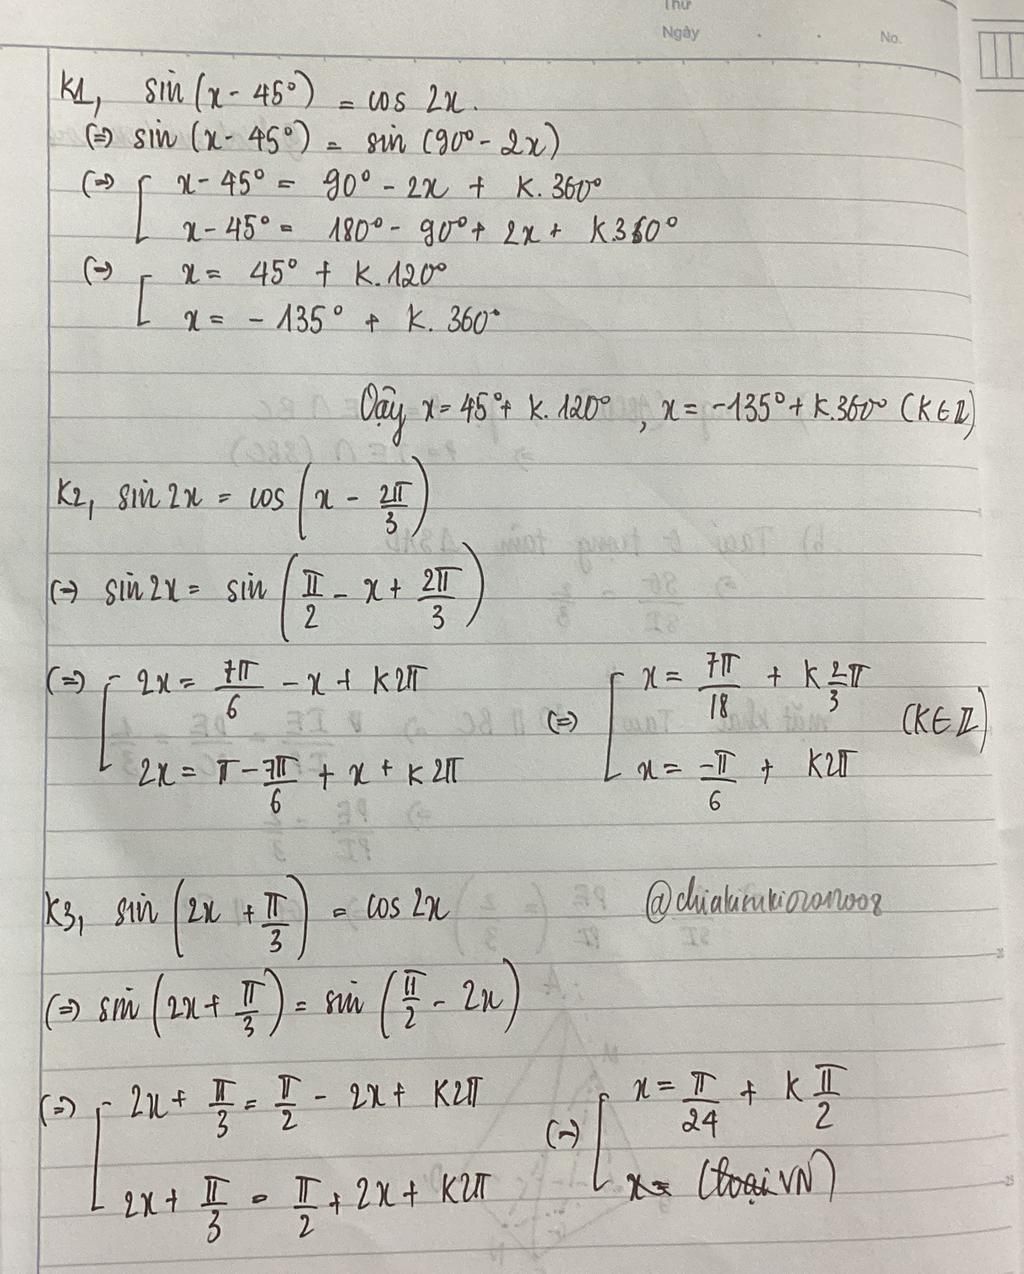 Thứ
Ngày . . No.
K1, sin (x - 45°) = cos 2x.
(=) sin (x - 45°) = sin (90° - 2x)
(=) [ x - 45° = 90° - 2x + K.360°
x - 45° = 180° - 90° + 2x + K360°
(=) [ x = 45° + K.120°
x = -135° + K.360°
Vậy x = 45° + K.120°, x = -135° + K.360° (K∈Z)
K2, sin 2x = cos (x - 2π/3)
(=) sin 2x = sin (π/2 - x + 2π/3)
(=) [ 2x = 7π/6 - x + K2π (=) [ x = 7π/18 + K 2/3 π (K∈Z)
2x = π - 7π/6 + x + K2π x = -π/6 + K2π
K3, sin (2x + π/3) = cos 2x
(=) sin (2x + π/3) = sin (π/2 - 2x)
(=) [ 2x + π/3 = π/2 - 2x + K2π (=) [ x = π/24 + K π/2
2x + π/3 = π/2 + 2x + K2π x = (loại VN)